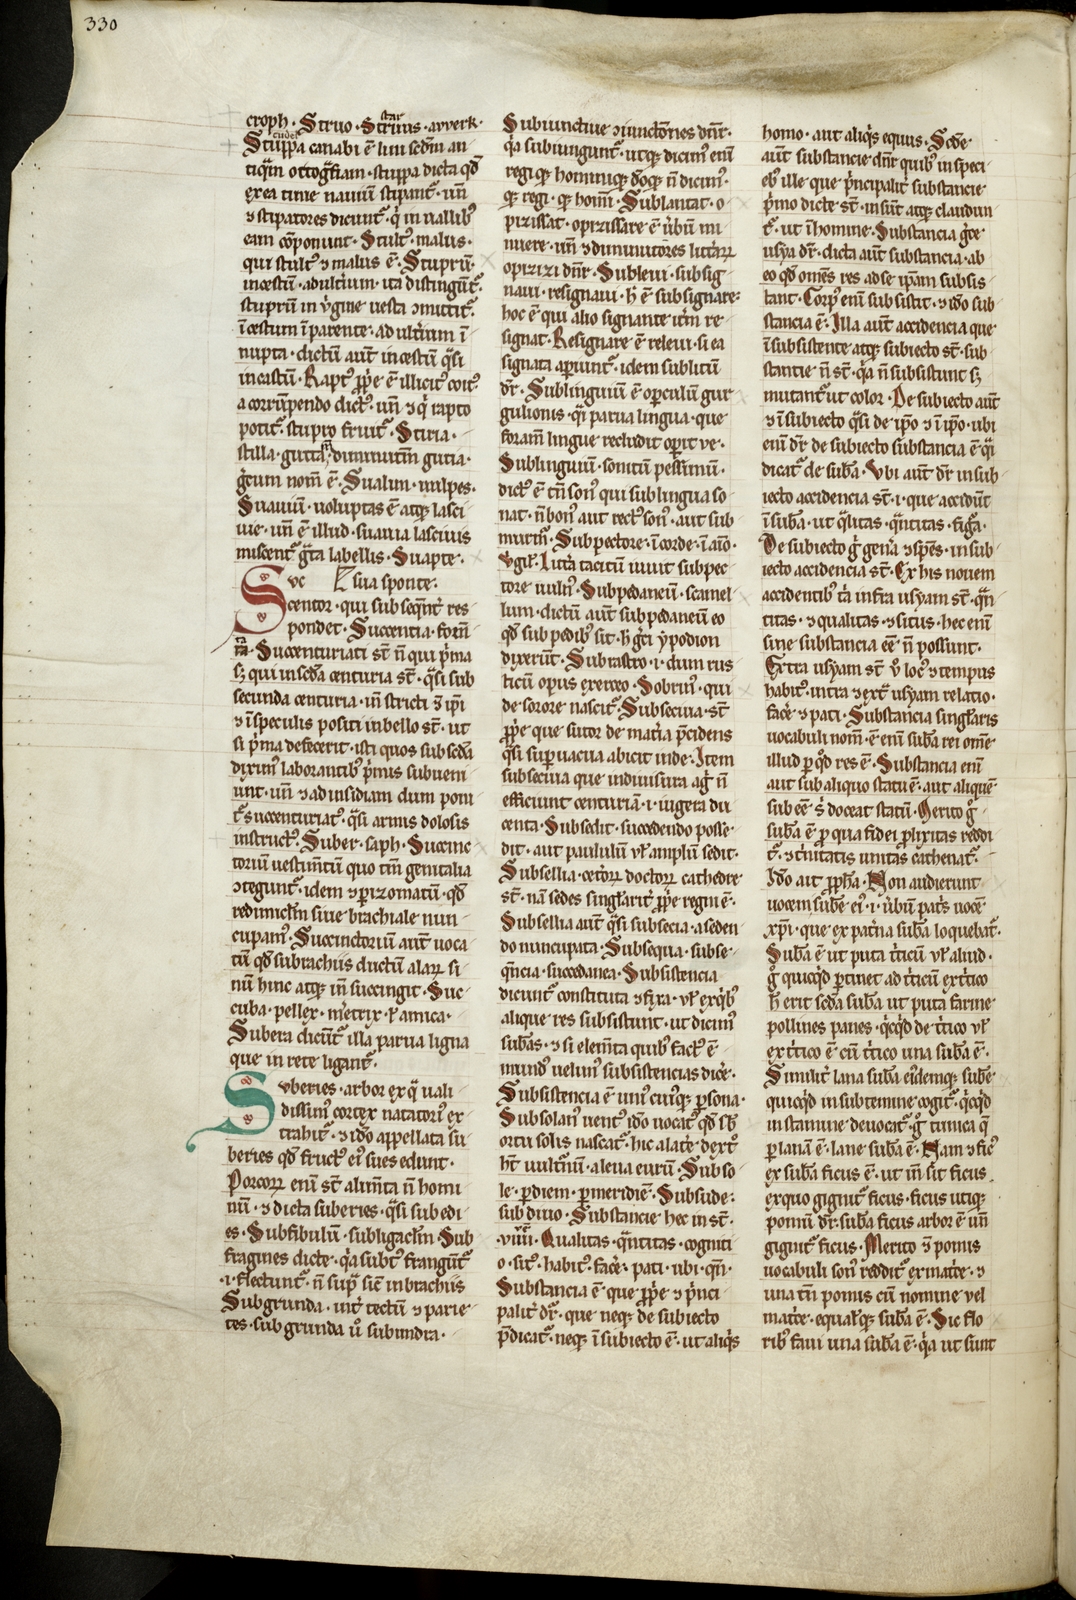 330
croph · Struo · Strius · avverk ·
star
Stuppa canabi ē lini sedm̄ an
cudel
tiq̄m ortog̃fiam · stuppa dicta qđ
ex ea rime nauiū stipant᷑ · un̄
⁊ stipatores dicunt᷑ · q̇ in uallib᷒
eam cōponunt · Stult᷒ · malus ·
qui stult᷒ ⁊ malus ē · Stuprū ·
incestū · adultium · ita distingūt᷑ ·
stuprū in v̇gine uesta ɔmittit᷑ ·
īcestum ī parente · adultiium ī
nupta · dictū aut̄ incestū q̄si
incastū · Rapt᷒ p̄pe ē illicit᷒ coit᷒
a corrūpendo dict᷒ · un̄ ⁊ q̇ rapto
potit᷑ · stupro fruit᷑ · Stiria ·
stilla · gutta, diminutiū gutta ·
g̃cum nom̄ ē · Sualun · uulpes ·
Suauiū · uoluptas ē atq; lasci
uie · un̄ ē illud · suauia lasciuis
miscent᷑ g̃ta labellis · Suapte ·
Svc sua sponte ·
centor · qui subseq̄nt᷑ res
pondet · Succentia · forñ
na · Succenturiati st̄ n̄ qui p̄ma
s; qui in secđa centuria st̄ · q̄si sub
secunda centuria · in stricti ⁊ ip̄i
⁊ ī speculis positi in bello st̄ · ut
si p̄ma defecerit · isti quos sub sc̄da
dixim᷒ laborantib᷒ p̄mis subueni
unt · un̄ ⁊ ad insidiam dum poni
t᷑ succenturiat᷒ · q̄si armis dolosis
instruct᷒ · Suber · saph · Succinc
toriū uestimt̄ū quo tm̄ genitalia
ɔtegunt᷑ · idem ⁊ p̱izomatū · qđ
redimicl̄m siue brachiale nun
cupam᷒ · Succinctoriū aut̄ uoca
tū qđ sub rachiis ductū alaꝝ si
nū hinc atq; in̄ succingit · Suc
cuba · pellex · m̄etrix · ꝉ amica ·
Subera dicūt᷑ illa parua ligna
que in rete ligant᷑ ·
Svberies · arbor ex q̄ uali
dissim᷒ cortex natatori᷒ ex
trahit᷑ · ⁊ iđo appellata su
beries qđ fruct᷒ ei᷒ sues edunt ·
Porcoꝝ enī st̄ alimt̄a n̄ homi
nū · ⁊ dicta suberies · q̄si sub edi
es · Subfibulū · subligacl̄m Sub
fragines dicte · q̇a subt᷒ frangūt᷑
· i · flectunt᷑ · n̄ sup̄ sic̄ in brachiis
Subgrunda · int̄ tectū ⁊ parie
tes · sub grunda u̇ subimdra ·
Subiunctiue ɔiunctōnes dnr̄ ·
q̇a subiungunt᷑ · utq; dicim᷒ enī
regiq; hominiq; đoq; n̄ dicim᷒ ·
q; regi · q; homī · Sublantat · o
pizissat · opizissare ē ūbū mi
nuere · un̄ ⁊ diminutōes litt̄aꝝ
opizizi dnr̄ · Subleui · subsig
naui · resignaui · h̄ ē subsignare ·
hoc ē qui alio signante itm̄ re
signat · Resignare ē releui · si ea
signata aperiunt᷑ · idem sublitū
dr̄ · Sublinguiū ē opculū gur
gulionis · q̄i parua lingua · que
foram̄ lingue recludit opit ve ·
Sublinguiū · sonitū pessimū ·
dict᷒ ē tn̄ son᷒ qui sub lingua so
nat · n̄ bon᷒ aut rect᷒ son᷒ · aut sub
murm᷒ · Sub pectore · ī corde · ī aīo ·
vgil᷒ · Iut̄a tacitū uiuit sub pec
tore vuln᷒ · Subpedaneū · scamel
lum · dictū aut̄ subpedaneū eo
qđ sub pedib᷒ sit · h̄ g̃ci ypodion
dixerūt · Subrastro · i · dum rus
ticū opus exerceo · Sobrin᷒ · qui
de sorore nascit᷑ · Subseciua · st̄
p̄pe que sutor de mat̄ia p̄cidens
q̄si supuacua abicit inde · Item
subseciua que indiuisura ag᷒ n̄
efficiunt centuriā · i · iugera du
centa · Subsedit · succedendo posse ·
dit · aut paululū vꝉ ampliū sedit ·
Subsellia · ceteꝝ doctoꝝ cathedre
st̄ · nā sedes singlarit̄ p̄pe regni ē ·
Subsellia aut̄ q̄si subsecia · a seden
do nuncupata · Subsequa · subse ·
q̄ncia · succedanea · Subsistencia
dicunt᷑ constituta ⁊ fixa · vꝉ ex q̇b᷒
alique res subsistunt · ut dicim᷒
sub̄as · ⁊ si elemt̄a quib᷒ fact᷒ ē
mund᷒ uelim᷒ subsistencias dic̄e ·
Subsistencia ē uni᷒ cui᷒q; ꝑsona ·
Subsolan᷒ uent᷒ iđo uocat᷑ qđ sb̄
ortu solis nascat᷑ · hic a latē dext̄o
ht̄ vultnū · a leua eurū · Subso
le · ꝑ diem · ꝑ meridiē · Subsude ·
sub diuo · Substancie hec in st̄ ·
· viiii · Qualitas · q̄ntitas · cogniti
o · sit᷒ · habit᷒ · facē · pati · ubi · qn̄ ·
Substancia ē · que p̄pe ⁊ p̄nci
palit̄ dr̄ · que neq; de subiecto
p̄dicat᷑ · neq; ī subiecto ē · ut aliq̇s
homo · aut aliq̇s equus · Scđe ·
aut̄ substancie dnr̄ quib᷒ in speci
eb᷒ ille que p̄ncipalit̄ substancie
p̄mo dicte st̄ · insūt atq; claudun
t᷑ · ut ī homine · Substancia g̃ce
usya dr̄ · dicta aut̄ substancia · ab
eo qđ om̄es res ad se ip̄am subsis
tant · Corp᷒ enī subsistit · ⁊ iđo sub
stancia ē · Illa aut̄ accidencia que
ī subsistente atq; subiecto st̄ · sub
stantie n̄ st̄ · q̇a n̄ subsistunt s;
mutant᷑ ut color · De subiecto aut̄
⁊ ī subiecto q̄si de ip̄o ⁊ ī ip̄o · ubi
enī dr̄ de subiecto substancia ē q̄i
dicat᷑ de sub̄a · Vbi aut̄ dr̄ in sub
iecto accidencia st̄ · i · que accidūt
ī sub̄a · ut q̄litas · q̄ntitas · fig̃a ·
De subiecto g̊ gen̄a ⁊ spēs · in sub
iecto accidencia st̄ · Ex his nouem
accidentib᷒ t̄a infra usyam st̄ · q̄n
titas · ⁊ qualitas · ⁊ situs · hec enī
sine substancia ēe n̄ possunt ·
Extra usyam st̄ v̊ loc᷒ ⁊ tempus
habit᷒ · intra ⁊ ext̄ usyam relatio ·
facē ⁊ pati · Substancia singl̄aris
uocabuli nom̄ · ē enī sub̄a rei om̄e
illud ꝑ qđ res ē · Substancia enī
aut sub aliquo statu ē · aut aliquē
sub ēe · s̄ doceat statū · Merito g̊
sub̄a ē ꝑ qua fidei ꝑlixitas reddi
t᷑ · ⁊ t̄nitatis unitas cathenat᷑ ·
Iđo ait p̄ph̄a · Non audierunt
uocem sub̄e ei᷒ · i · ūbū pat̄s uocē
xp̄i · que ex pat̄na sub̄a loquebat᷑ ·
Sub̄a ē ut puta t̄ticū vꝉ aliud ·
g̊ quicq̇d ꝑtinet ad t̄ticū ex t̄tico
h̄ erit sc̄da sub̄a ut puta farine
pollines panes · q̇cq̇d de t̄tico vꝉ
ex t̄tico ē cū t̄tico una sub̄a ē ·
Similit̄ lana sub̄a ei᷒demq; sub̄e
quicq̇d in subtemine cogit᷑ · q̇cq̇d
in stamine deuocat᷑ · g̊ tunica q̄
ꝑ lanā ē · lane sub̄a ē · Nam ⁊ fic᷒
ex sub̄a ficus ē · ut in̄ sit ficus
ex quo gignit᷑ ficus · ficus utiq;
pomū dr̄ · sub̄a ficus arbor ē un̄
gignit᷑ ficus · Merito ⁊ pomis
uocabuli son᷒ reddit᷑ ex mat̄e · ⁊
una tn̄ pomis cū nomine vel
mat̄e · equalq; sub̄a ē · Sic flo
rib᷒ faui una sub̄a ē · q̇a ut sunt